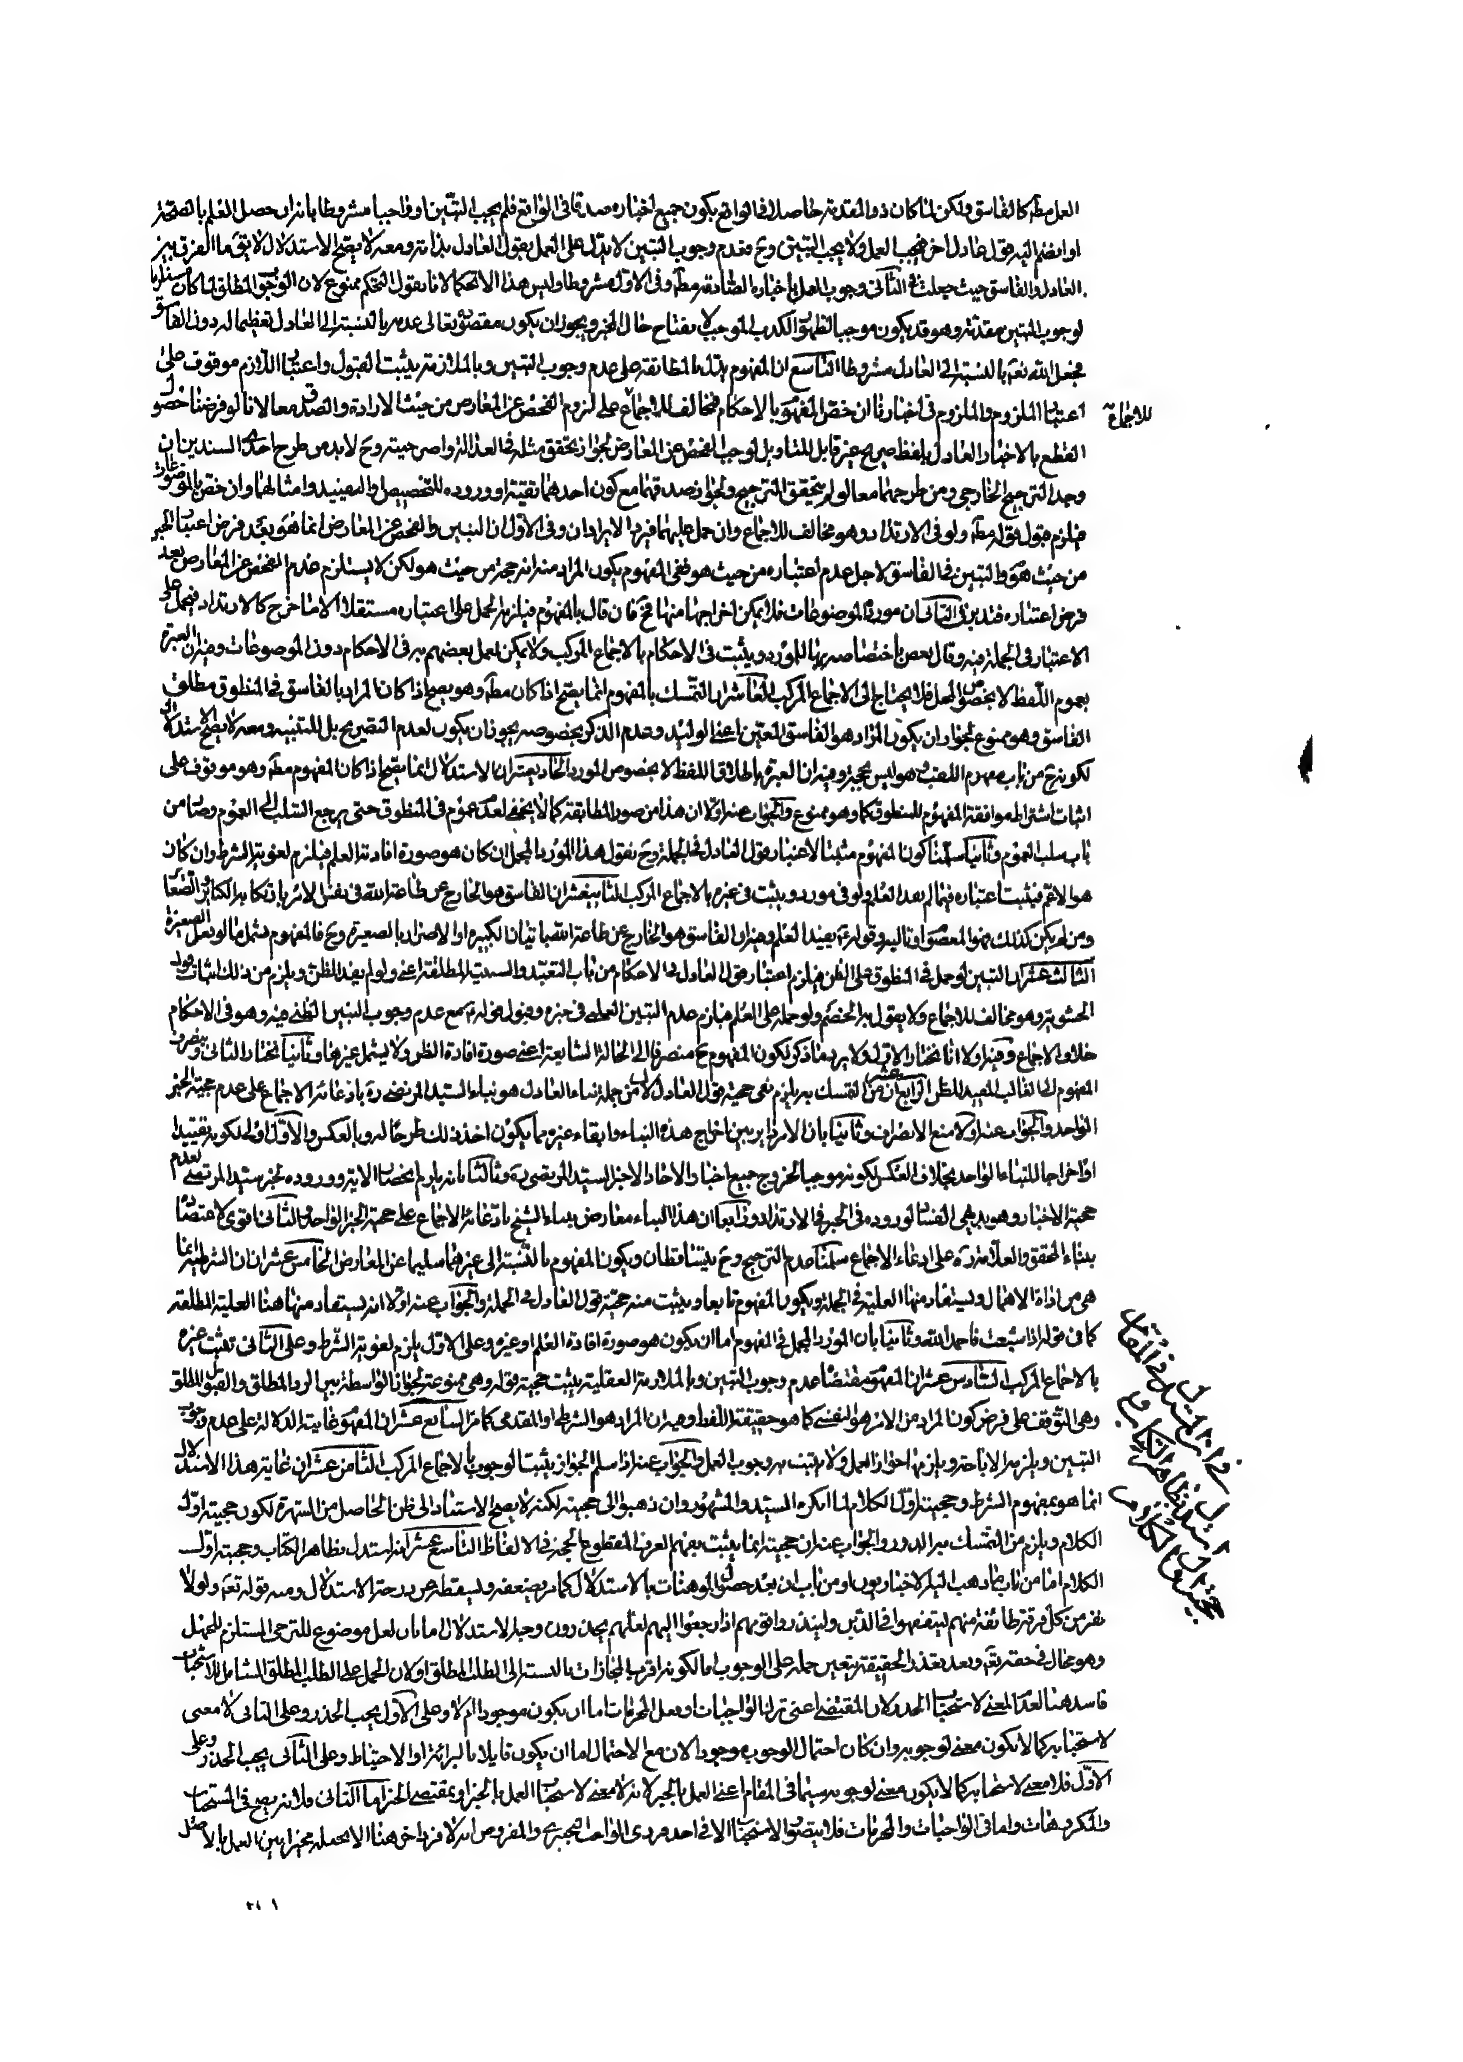 العمل مطه كالفاسق ولكن لما كان ذو المقدمة حاصلا في الواقع بكون جميع اخباره صدقا في الواقع فلم يجب التبين او واجبا مشروطا بانه ان حصل العلم بالصحة
او انضم اليه قول عادل اخر فيجب العمل ولا يجب التبين وح فعدم وجوب التبين لا يدل على العمل بقول العادل بذاته ومعه لا يصح الاستدلال لا يق ما الفرق بين
العادل والفاسق حيث جعلت في الثاني وجوب العمل باخباره الصادقة مطه وفي الاول مشروطا وليس هذا الا تحكما لانا نقول التحكم ممنوع لان الوجوب المطلق لما كان مستلزما
لوجوب التبين مقدمة وهو قد يكون موجبا لظهور الكذب الموجب لافتضاح حال المخبر ويجوز ان يكون مقصوده تعالى عدمه بالنسبة الى العادل تعظيما له دون الفاسق
فجعل الله تعه بالنسبة الى العادل مشروطا التاسع ان المفهوم يدل بالمطابقة على عدم وجوب التبين وبالملازمة يثبت القبول واعتبار اللازم موقوف على
اعتبار الملزوم والملزوم في اخباره ان خص المفهوم بالاحكام مخالف للاجماع على لزوم الفحص عن المعارض من حيث الارادة والصدق معا لانا لو فرضنا حصول
للاجماع
القطع بالاخبار العادل بلفظ صريح غير قابل للتاويل لوجب الفحص عن المعارض لجواز تحقق مثله في العدالة وصراحيته وح لا بد من طرح احد السندين ان
وجد الترجيح الخارجي ومن طرحهما معا لو لم يتحقق الترجيح ولجواز صدقهما مع كون احدهما تقية او وروده للتخصيص او التقييد وامثالهما وان خص بالموضوعات
فيلزم قبول قوله مطه ولو في الارتداد وهو مخالف للاجماع وان حمل عليهما فيرد الايرادان وفي الاول ان التبين والفحص عن المعارض انما هو بعد فرض اعتبار الخبر
من حيث هو والتبين في الفاسق لاجل عدم اعتباره من حيث هو ففي المفهوم يكون المراد منه انه حجة من حيث هو لكن لا يستلزم عدم الفحص عن المعارض بعد
فرض اعتباره فتدبر وفي الثاني ان مورده الموضوعات فلا يمكن اخراجها منها فح فان قال بالمفهوم فيلزم الحمل على اعتباره مستقلا الا ما خرج كالارتداد فيحمل على
الاعتبار في الجملة فيه وقال بعض باختصاصه بهذا المورد ويثبت في الاحكام بالاجماع المركب ولا يمكن العمل بعضهم به في الاحكام دون الموضوعات وفيه ان العبرة
بعموم اللفظ لا بخصوص المحل فلا يحتاج الى الاجماع المركب العاشر ان التمسك بالمفهوم انما يصح اذا كان مطه وهو يصح اذا كان المراد بالفاسق في المنطوق مطلق
الفاسق وهو ممنوع لجواز ان يكون المراد هو الفاسق المعين اعني الوليد وعدم الذكر بخصوصه يجوز ان يكون لعدم التصريح بل للتنبيه ومعه لا يصح الاستدلال
لكونه ح من باب مفهوم اللقب وهو ليس بحجة وفيه ان العبرة باطلاق اللفظ لا بخصوص المورد الحادي عشر ان الاستدلال انما يصح اذا كان المفهوم مطه وهو موقوف على
اثبات اشتراط موافقة المفهوم للمنطوق كما وهو ممنوع والجواب عنه اولا ان هذا من صور المطابقة كما لا يخفى لعدم عموم في المنطوق حتى يرجع السلب الى العموم وصار من
باب سلب العموم وثانيا سلمنا كون المفهوم مثبتا لاعتبار قول العادل في الجملة وح نقول هذا المورد المجمل ان كان هو صورة افادته العلم فيلزم لغوية الشرط وان كان
هو الاعم فيثبت اعتباره فيما لم يفد العلم ولو في مورد ويثبت في غيره بالاجماع المركب الثاني عشر ان الفاسق هو الخارج عن طاعة الله في نفس الامر بارتكابه الكبائر والصغائر
ومن لم يكن كذلك فهو المعصوم او تاليه وقوله يفيد العلم وفيه ان الفاسق هو الخارج عن طاعة الله باتيان الكبيرة او الاصرار بالصغيرة وح فالمفهوم يشمل ما لو فعل الصغيرة
الثالث عشر ان التبين لو حمل في المنطوق على الظن فيلزم اعتبار قول العادل في الاحكام من باب التعبد والسببية المطلقة اعني ولو لم يفد الظن ويلزم من ذلك اثبات قول
الحشوية وهو مخالف للاجماع ولا يقول به الخصم ولو حمله على العلم فيلزم عدم التبين العلمي في خبره وقبول قوله مع عدم وجوب التبين الظني فيه وهو في الاحكام
خلاف الاجماع وفيه اولا انا نختار الاول ولا يرد ما ذكر لكون المفهوم ح منصرفا الى الحالة الشايعة اعني صورة افادة الظن ولا يشمل غيرها وثانيا نختار الثاني وينصرف
المفهوم الى الغالب المفيد للظن الرابع عشر ان من التمسك به يلزم نفي حجية قول العادل لان من جملة نباء العادل هو نباء السيد المرتضى ره بادعائه الاجماع على عدم حجية الخبر
الواحد والجواب عنه اولا منع الانصراف وثانيا بان الامر داير بين اخراج هذه النباء وابقاء غيره مما يكون اخذ ذلك طرحا له وبالعكس والاول اولى لكونه تقييدا
او اخراجا للنباء الواحد بخلاف العكس لكونه موجبا لخروج جميع اخبار الاحاد الا خبر السيد المرتضى ره وثالثا بانه يلزم اختصاص الاية ووروده لخبر سيد المرتضى لعدم
حجية الاخبار وهو بديهي الفساد لوروده في الخبر في الارتداد ورابعا ان هذا النباء معارض بنباء الشيخ بادعائه الاجماع على حجية الخبر الواحد والثاني اقوى لاعتضاده
بنباء المحقق والعلامة ره على ادعاء الاجماع سلمنا عدم الترجيح وح يتساقطان ويكون المفهوم بالنسبة الى غيرهما سليما عن المعارض الخامس عشر ان ان الشرطية انما
هي من اداة الاهمال ويستفاد منها العلية في الجملة ويكون المفهوم تابعا ويثبت منه حجية قول العادل في الجملة والجواب عنه اولا انه يستفاد منها هنا العلية المطلقة
كما في قوله اذا شبعت فاحمد الله وثانيا بان المورد المجمل في المفهوم اما ان يكون هو صورة افادة العلم او غيره وعلى الاول يلزم لغوية الشرط وعلى الثاني تعيث غيره
بالاجماع المركب السادس عشر ان المفهوم مقتضاه عدم وجوب التبين وبالملازمة العقلية يثبت حجية قوله وهي ممنوعة لجواز الواسطة بين الرد المطلق والقبول المطلق
وهي التوقف على فرض كون المراد من الامر هو النفسي كما هو حقيقة اللفظ وفيه ان المراد هو الشرطي او المقدمي كما مر السابع عشر ان المفهوم غاية الدلالة على عدم وجوب
التبين ويلزمه الاباحة ويلزمها جواز العمل ولا يثبت به وجوب العمل والجواب عنه اذا سلم الجواز يثبت الوجوب بالاجماع المركب الثامن عشر ان غاية هذا الاستدلال
انما هو بمفهوم الشرط وحجيته اول الكلام لما انكره السيد والمشهور وان ذهبوا الى حجيته لكنه لا يصح الاستناد الى ظن الحاصل من الشهرة لكون حجيته اول
الكلام ويلزم من التمسك به الدور والجواب عنه ان حجيته انما يثبت بفهم العرف المقطوع الحجية في الالفاظ التاسع عشر انه استدل بظاهر الكتاب وحجيته اول
الكلام اما من باب ما ذهب اليه الاخباريون او من باب ان بعد حصول الوهنات بالاستدلال كما مر يضعفه ويسقطه عن درجة الاستدلال ومنه قوله تعه ولولا
نفر من كل فرقة طائفة منهم ليتفقهوا في الدين ولينذروا قومهم اذا رجعوا اليهم لعلهم يحذرون وجه الاستدلال اما بان لعل موضوع للترجي المستلزم للجهل
وهو محال في حقه تعه وبعد تعذر الحقيقة يتعين حمله على الوجوب اما لكونه اقرب المجازات بالنسبة الى الطلب المطلق او لان الحمل على الطلب المطلق الشامل للاستحباب
فاسد هنا لعدم المعنى لاستحباب الحذر لان المقتضى اعني ترك الواجبات او فعل المحرمات اما ان يكون موجودا ام لا وعلى الاول يجب الحذر وعلى الثاني لا معنى
لاستحبابه كما لا يكون معنى لوجوبه وان كان احتمال الوجوب موجودا لان مع الاحتمال اما ان يكون قايلا بالبرائة او الاحتياط وعلى الثاني يجب الحذر وعلى
الاول فلا معنى لاستحبابه كما لا يكون معنى لوجوبه سيما في المقام اعني العمل بالخبر لانه لا معنى لاستحباب العمل بالخبر او بمقتضى الخبر اما الثاني فلانه يصح في المستحبات
والمكروهات واما في الواجبات والمحرمات فلا يتصور الاستحباب الا في احد فردي الواجب التخييري والمفروض انه لا فرد اخر هنا الا بجعله مخيرا بين العمل بالاصل